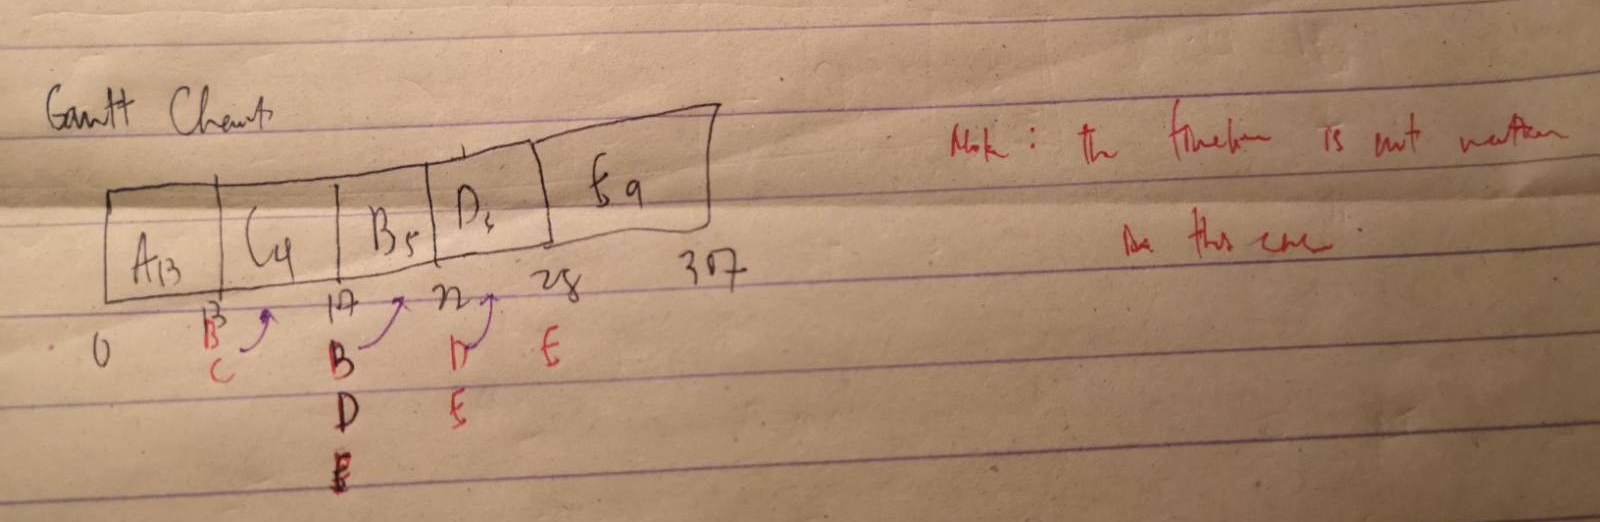 Gantt Chart
A13 C4 B5 D6 E9
0 13 17 22 28 307
B B D E
C D E
E
Note : the function is not written
this one